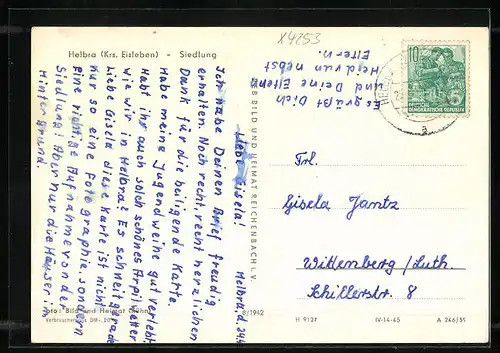 X4253
Helbra (Krs. Eisleben) - Siedlung
10
DEUTSCHE
DEMOKRATISCHE REPUBLIK
Helbra, d. 24.4.
Liebe Gisela!
Ich habe Deinen Brief freudig
erhalten. Noch recht, recht herzlichen
Dank für die beiligende Karte.
Habe meine Jugendweihe gut verlebt.
Habt ihr auch solch schönes Aprilwetter
wie wir in Helbra? Es schneit gerade.
Liebe Gisela diese Karte ist nicht
nur so eine Fotographie, sondern
eine richtige Aufnahme von der
Siedlung. Aber nur die Häuser im
Hintergrund.
Es grüßt Dich
und Deine Eltern
Heidrun nebst
Eltern.
VEB BILD UND HEIMAT REICHENBACH I. V.
Frl.
Gisela Jantz
Wittenberg/Luth.
Schillerstr. 8
Foto: Bild und Heimat
Verbraucherpreis DM -,20
8/1942
H 9127
IV-14-45
A 246/59